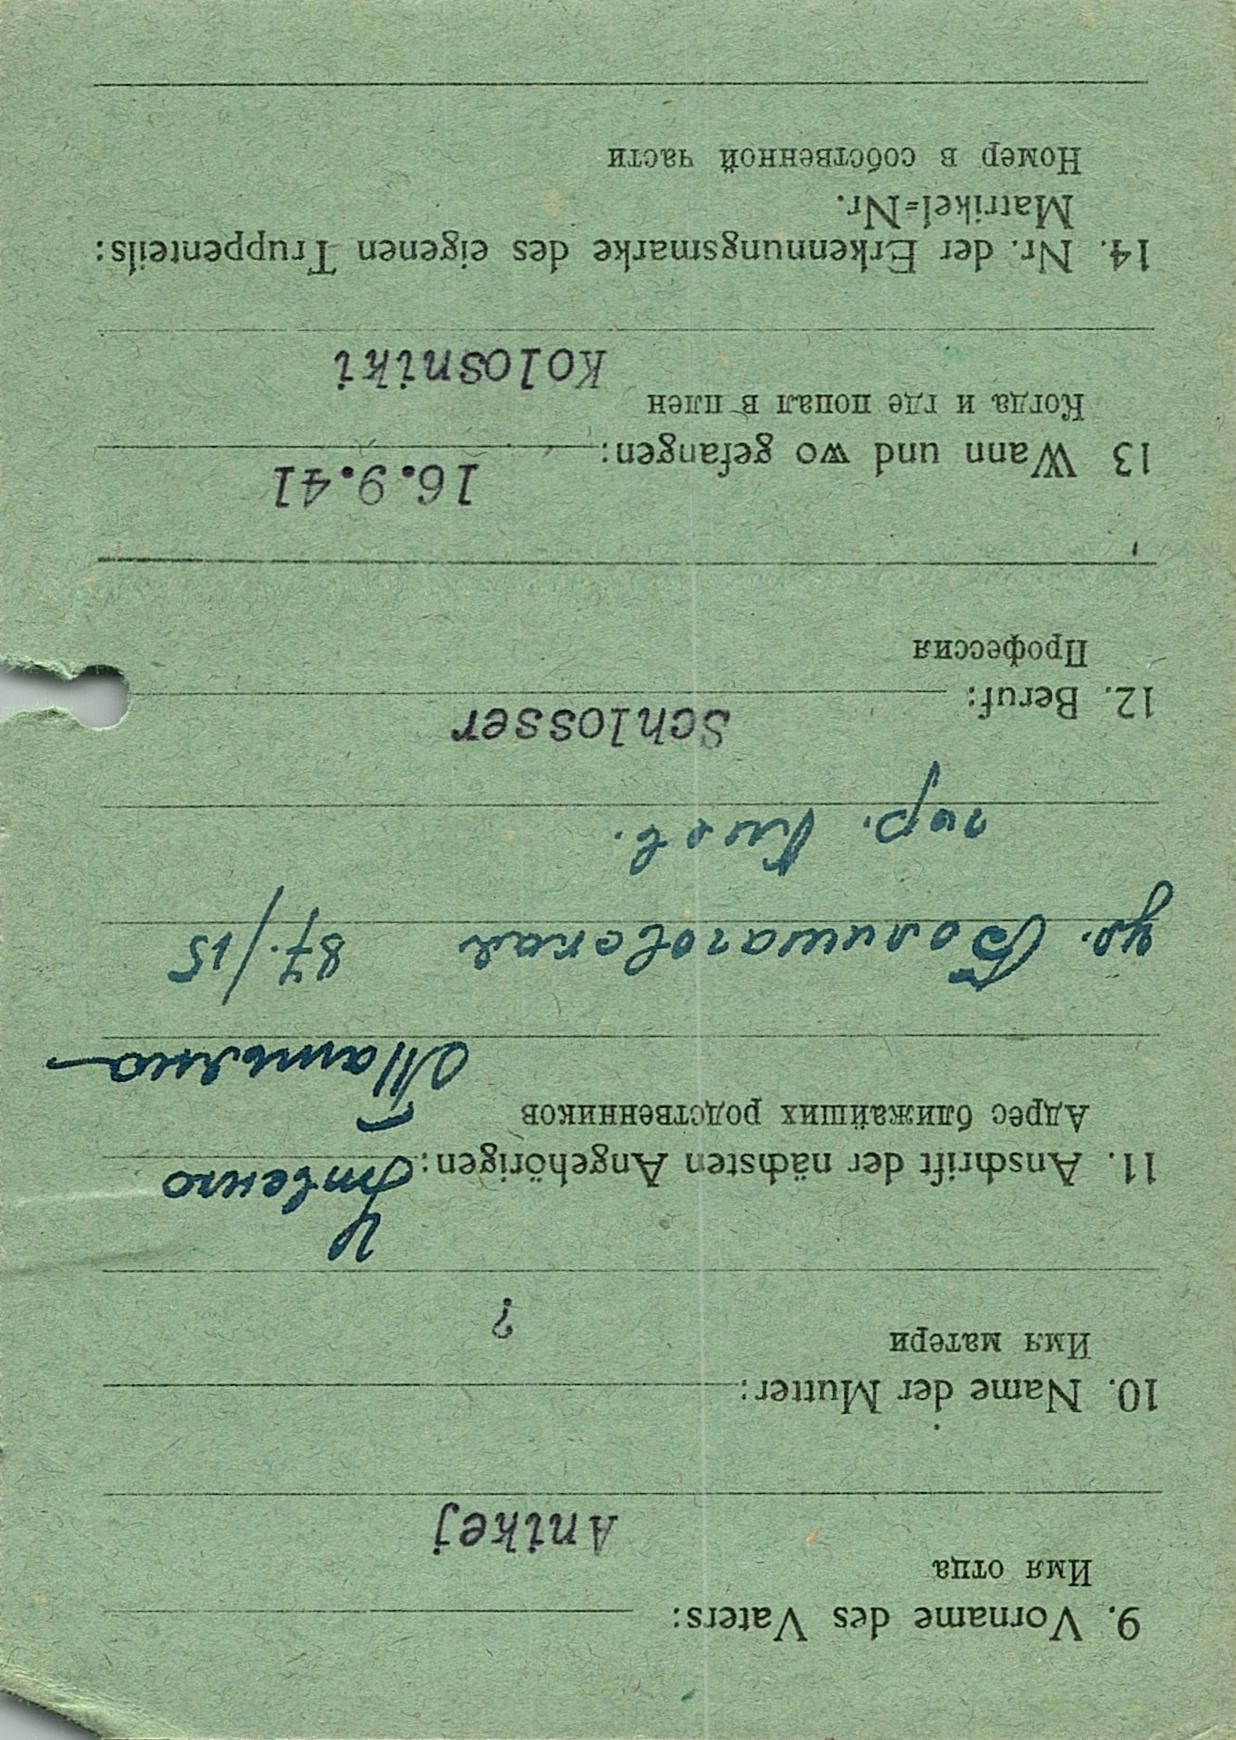 9. Vorname des Vaters:
Имя отца
Anikej
10. Name der Mutter:
Имя матери
?
11. Anschrift der nächsten Angehörigen:
Адрес ближайших родственников
Татьяна
ул. 87/15
гор. Киев.
12. Beruf: Schlosser
Профессия
13 Wann und wo gefangen: 16.9.41
Когда и где попал в плен
Kolosniki
14. Nr. der Erkennungsmarke des eigenen Truppenteils:
Matrikel=Nr.
Номер в собственной части